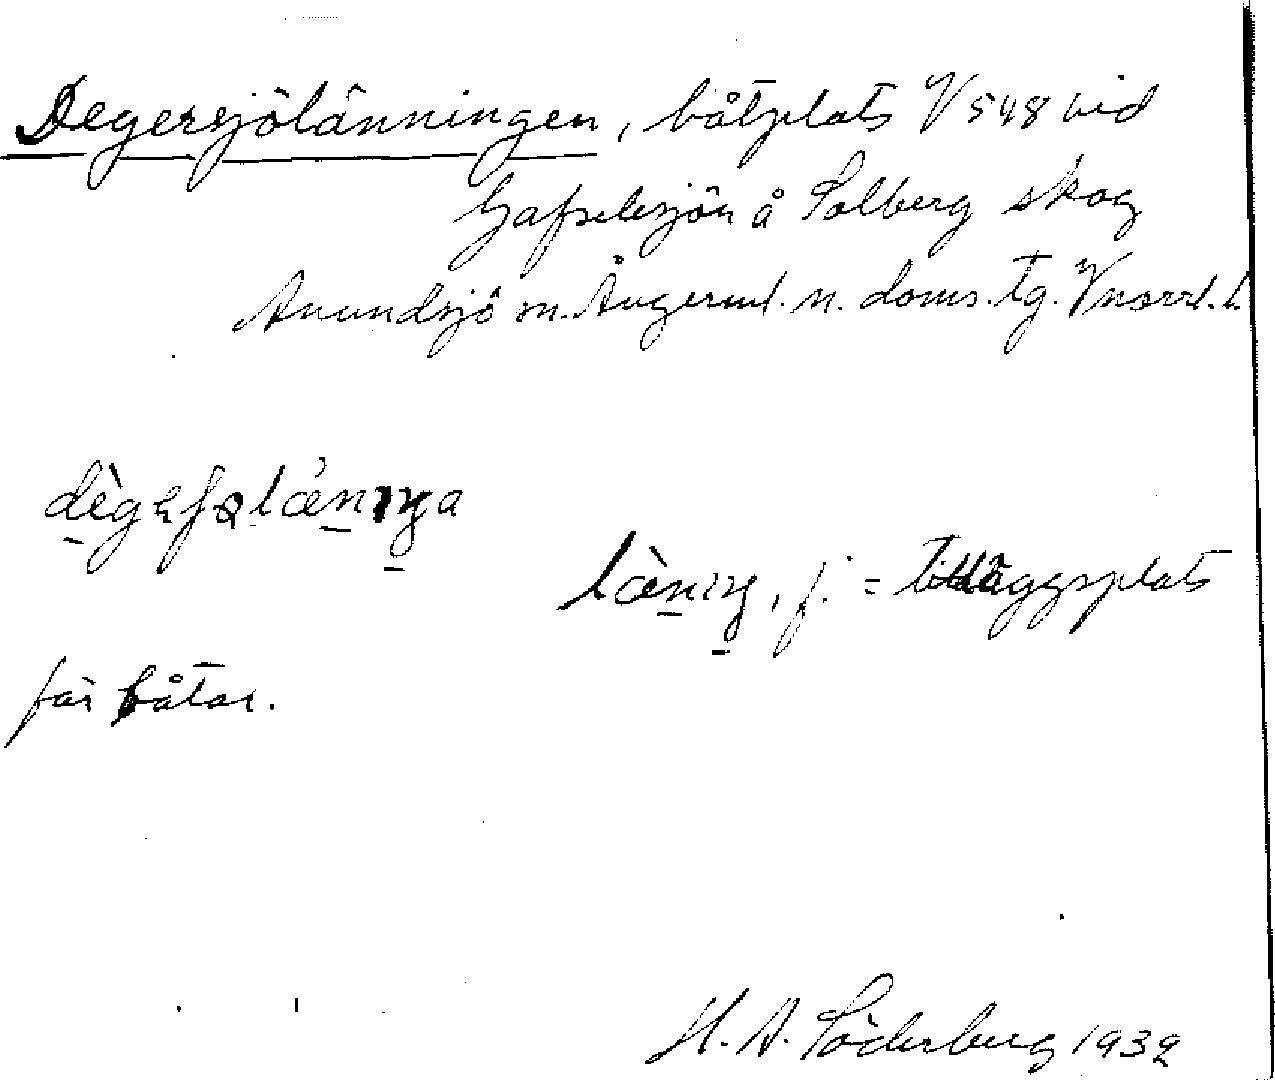 Degersjölänningen, båtplats V 548 vid
Gafselesjön å Solberg skog
Anundsjö sn. Ångerml. n. doms. tg. Vnorrl. l.
lä̀niŋ, f. = tilläggsplats
för båtar.
H. A. Söderberg 1932